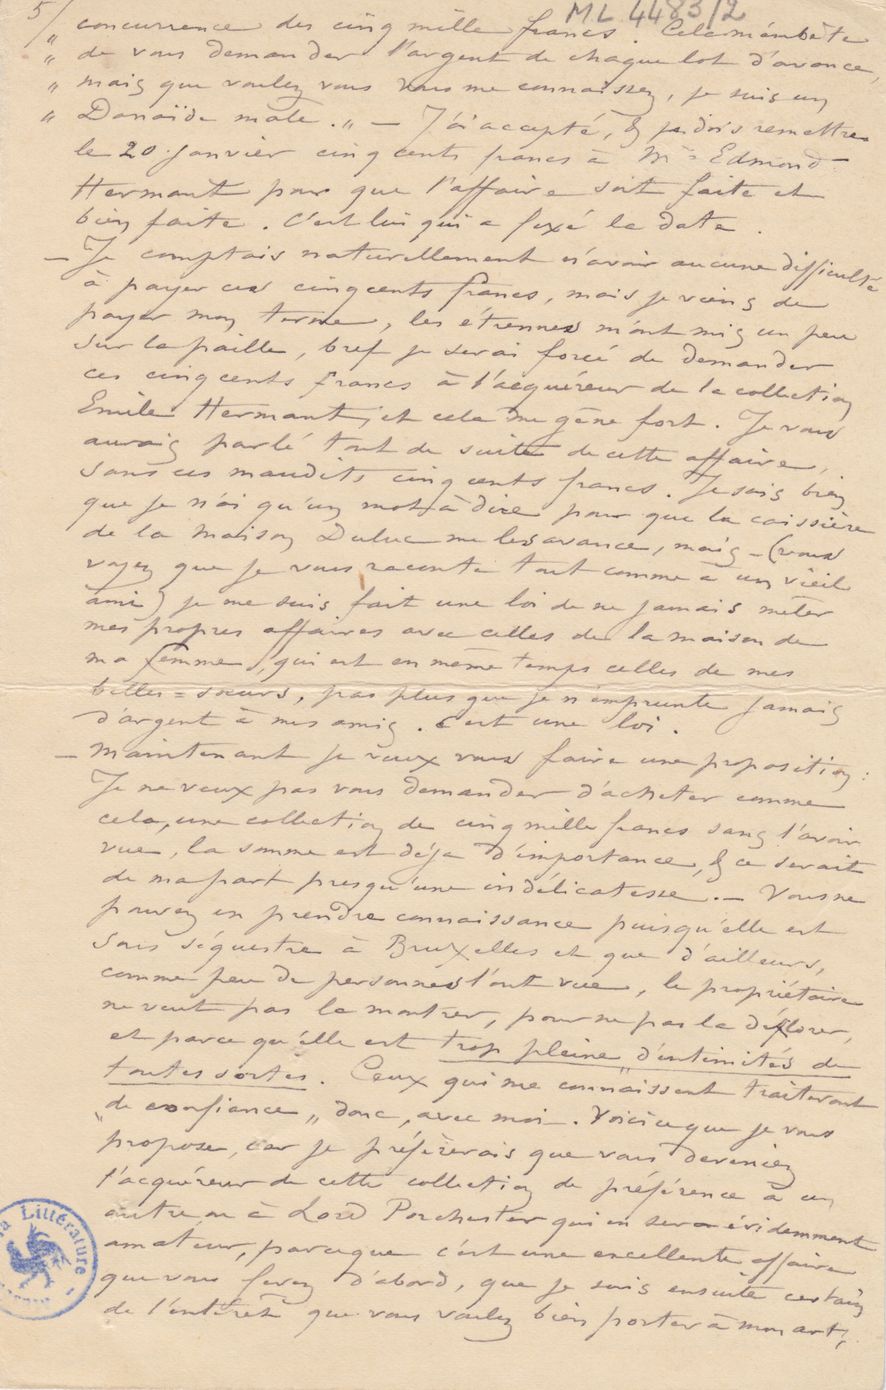 5/
ML 4483/2
" concurrence des cinq mille francs. Cela m'embête
" de vous demander l'argent de chaque lot d'avance,
" mais que voulez vous vous me connaissez, je suis un
" Danaïde mâle. " — J'ai accepté, & je dois remettre
le 20 janvier cinq cents francs à Mr Edmond
Hermant pour que l'affaire soit faite et
bien faite. C'est lui qui a fixé la date.
— Je comptais naturellement n'avoir aucune difficulté
à payer ces cinq cents francs, mais je viens de
payer mon terme, les étrennes m'ont mis un peu
sur la paille, bref je serai forcé de demander
ces cinq cents francs à l'acquéreur de la collection
Emile Hermant, et cela me gêne fort. Je vous
aurais parlé tout de suite de cette affaire,
sans ces maudits cinq cents francs. Je sais bien
que je n'ai qu'un mot à dire pour que la caissière
de la maison Duluc me les avance, mais – (vous
voyez que je vous raconte tout comme à un vieil
ami) je me suis fait une loi de ne jamais mêler
mes propres affaires avec celles de la maison de
ma femme, qui est en même temps celles de mes
belles=sœurs, pas plus que je n'emprunte jamais
d'argent à mes amis. C'est une loi.
— Maintenant je veux vous faire une proposition :
Je ne veux pas vous demander d'acheter comme
cela, une collection de cinq mille francs sans l'avoir
vue, la somme est déjà d'importance, & ce serait
de ma part presqu'une indélicatesse. — Vous ne
pouvez en prendre connaissance puisqu'elle est
sous séquestre à Bruxelles et que d'ailleurs,
comme peu de personnes l'ont vue, le propriétaire
ne veut pas la montrer, pour ne pas la déflorer,
et parce qu'elle est trop pleine d'intimités de
toutes sortes. Ceux qui me connaissent traiteront
"de confiance" donc, avec moi. Voici ce que je vous
propose, car je préfèrerais que vous deveniez
l'acquéreur de cette collection de préférence à un
autre ou à Lord Porchester qui en sera évidemment
amateur, parce que c'est une excellente affaire
que vous ferez d'abord, que je suis ensuite certain
de l'intérêt que vous voulez bien porter à mon art,
la Littérature